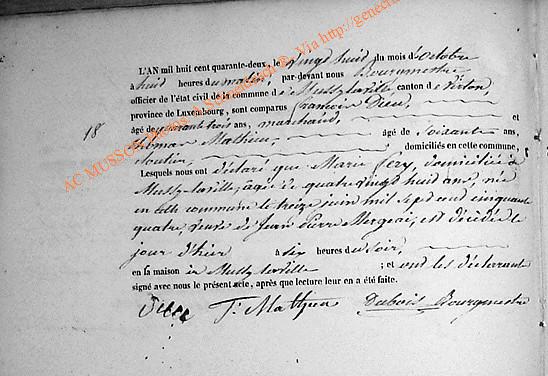 L'AN mil huit cent quarante-deux, le vingt huit du mois d'octobre
à huit heures du matin, par-devant nous Bourgmestre
officier de l'état civil de la commune de Mussy-la-ville canton de Virton,
province de Luxembourg, sont comparus françois
âgé de quarante trois ans, marchand, et
18
Thomas Mathieu, âgé de soixante ans,
domiciliés en cette commune,
Lesquels nous ont déclaré que Marie domiciliée à
Mussy-la-ville, agée de quatre vingt huit ans, née
en cette commune le treize juin mil sept cent cinquante
quatre, veuve de Jean Pierre Mergeai, est décédée le
jour d'hier à six heures du soir,
en sa maison à Mussy-la-ville ; et ont les déclarants
signé avec nous le présent acte, après que lecture leur en a été faite.
T. Mathieu Dubois Bourgmestre